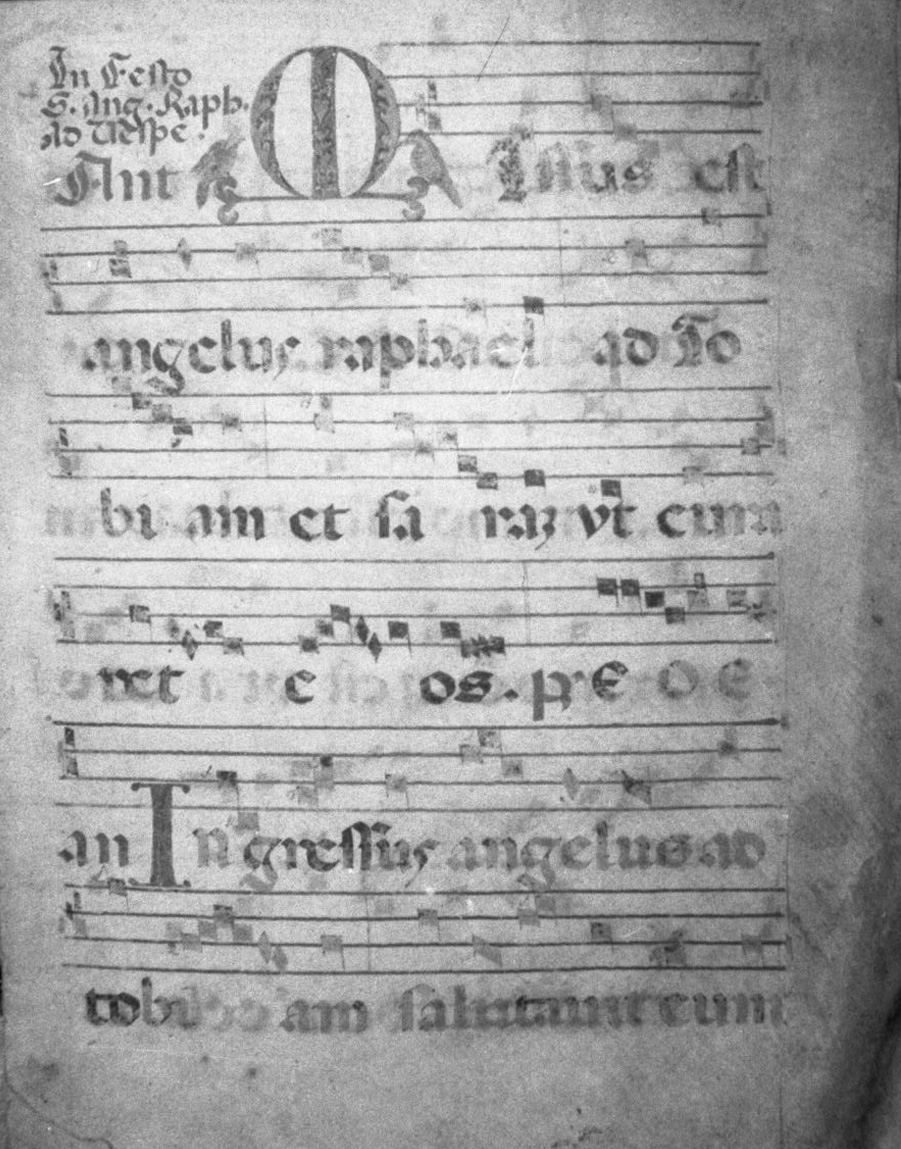 In Festo
S. Ang. Raph.
ad Vespe.
Ant MIssus est
angelus raphael ad To
bi am et sa raz vt cura
ret e os. ps E O E
an In gressus angelus ad
tobi am salutauit eum